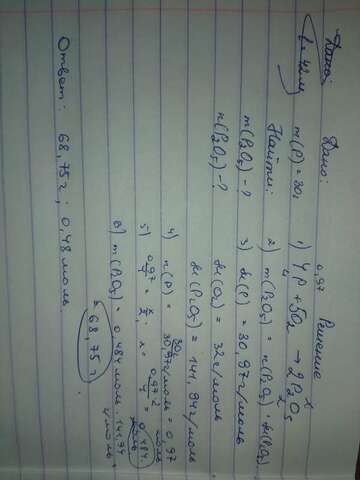 Дано:
Дано: Решение
m(P) = 30г
Найти:
m(P₂O₅) - ?
n(P₂O₅) - ?
0,97 x
1) 4P + 5O₂ → 2P₂O₅
4 2
2) m(P₂O₅) = n(P₂O₅) · M(P₂O₅)
3) M(P) = 30,97г/моль
M(O₂) = 32г/моль
M(P₂O₅) = 141,94г/моль
4) n(P) = 30г / 30,97г/моль = 0,97 моль
5) 0,97/4 = x/2; x = 0,97·2/4 = 0,484 моль
6) m(P₂O₅) = 0,484 моль · 141,94 г/моль =
= 68,75 г
Ответ: 68,75 г; 0,48 моль